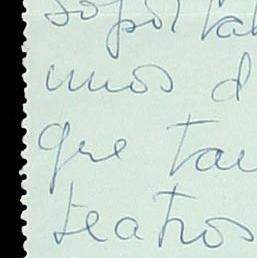 soportal
unos d
que tan
teatros